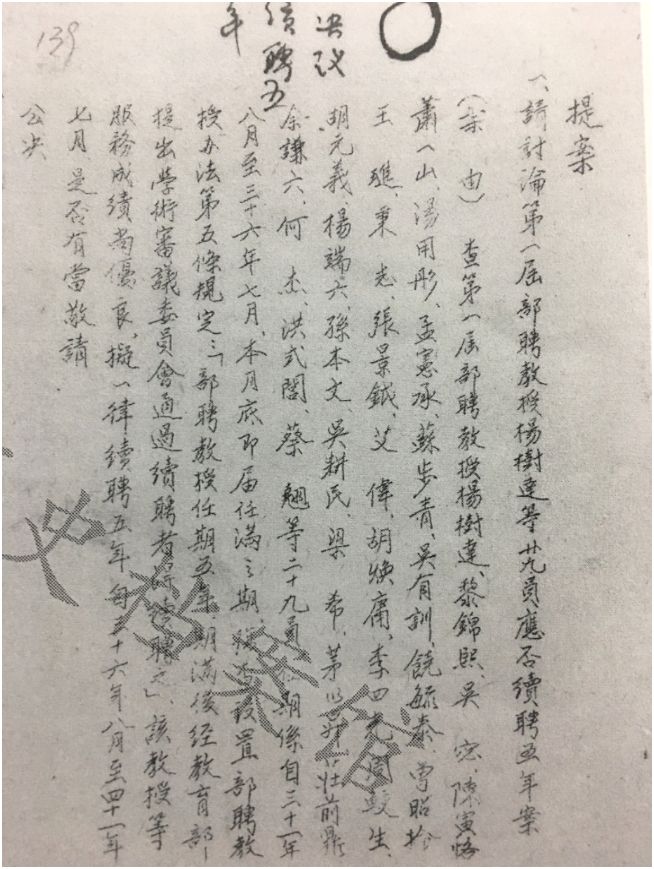 139
决议
续聘五
年
提案
一、請討論第一屆部聘教授楊樹達等廿九員應否續聘五年案
（案　由）查第一屆部聘教授楊樹達、黎錦熙、吳　宓、陳寅恪
蕭一山、湯用彤、孟憲承、蘇步青、吳有訓、饒毓泰、曾昭掄
王　璡、秉　志、張景鉞、艾　偉、胡煥庸、李四光、周鯁生、
胡元義、楊端六、孫本文、吳耕民、梁　希、茅以昇、莊前鼎
余謙六、何　杰、洪式閭、蔡　翹等二十九員任期係自三十一年
八月至三十六年七月，本月底即届任滿之期，設置部聘教
授办法第五條規定：「部聘教授任期五年，期滿後經教育部
提出學術審議委員會通過續聘者得續聘之」，該教授等
服務成績尚優良，擬一律續聘五年，每三十六年八月至四十一年
七月，是否有當敬請
公决